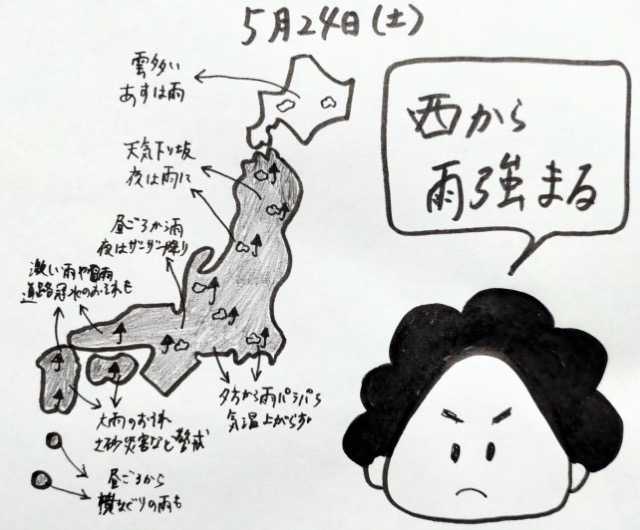 5月24日(土)
雲多い
あすは雨
西から
雨強まる
天気下り坂
夜は雨に
昼ごろから雨
夜はザーザー降り
激しい雨や雷雨
道路冠水のおそれも
夕方から雨パラパラ
気温上がらず
大雨のおそれ
土砂災害など警戒
昼ごろから
横なぐりの雨も